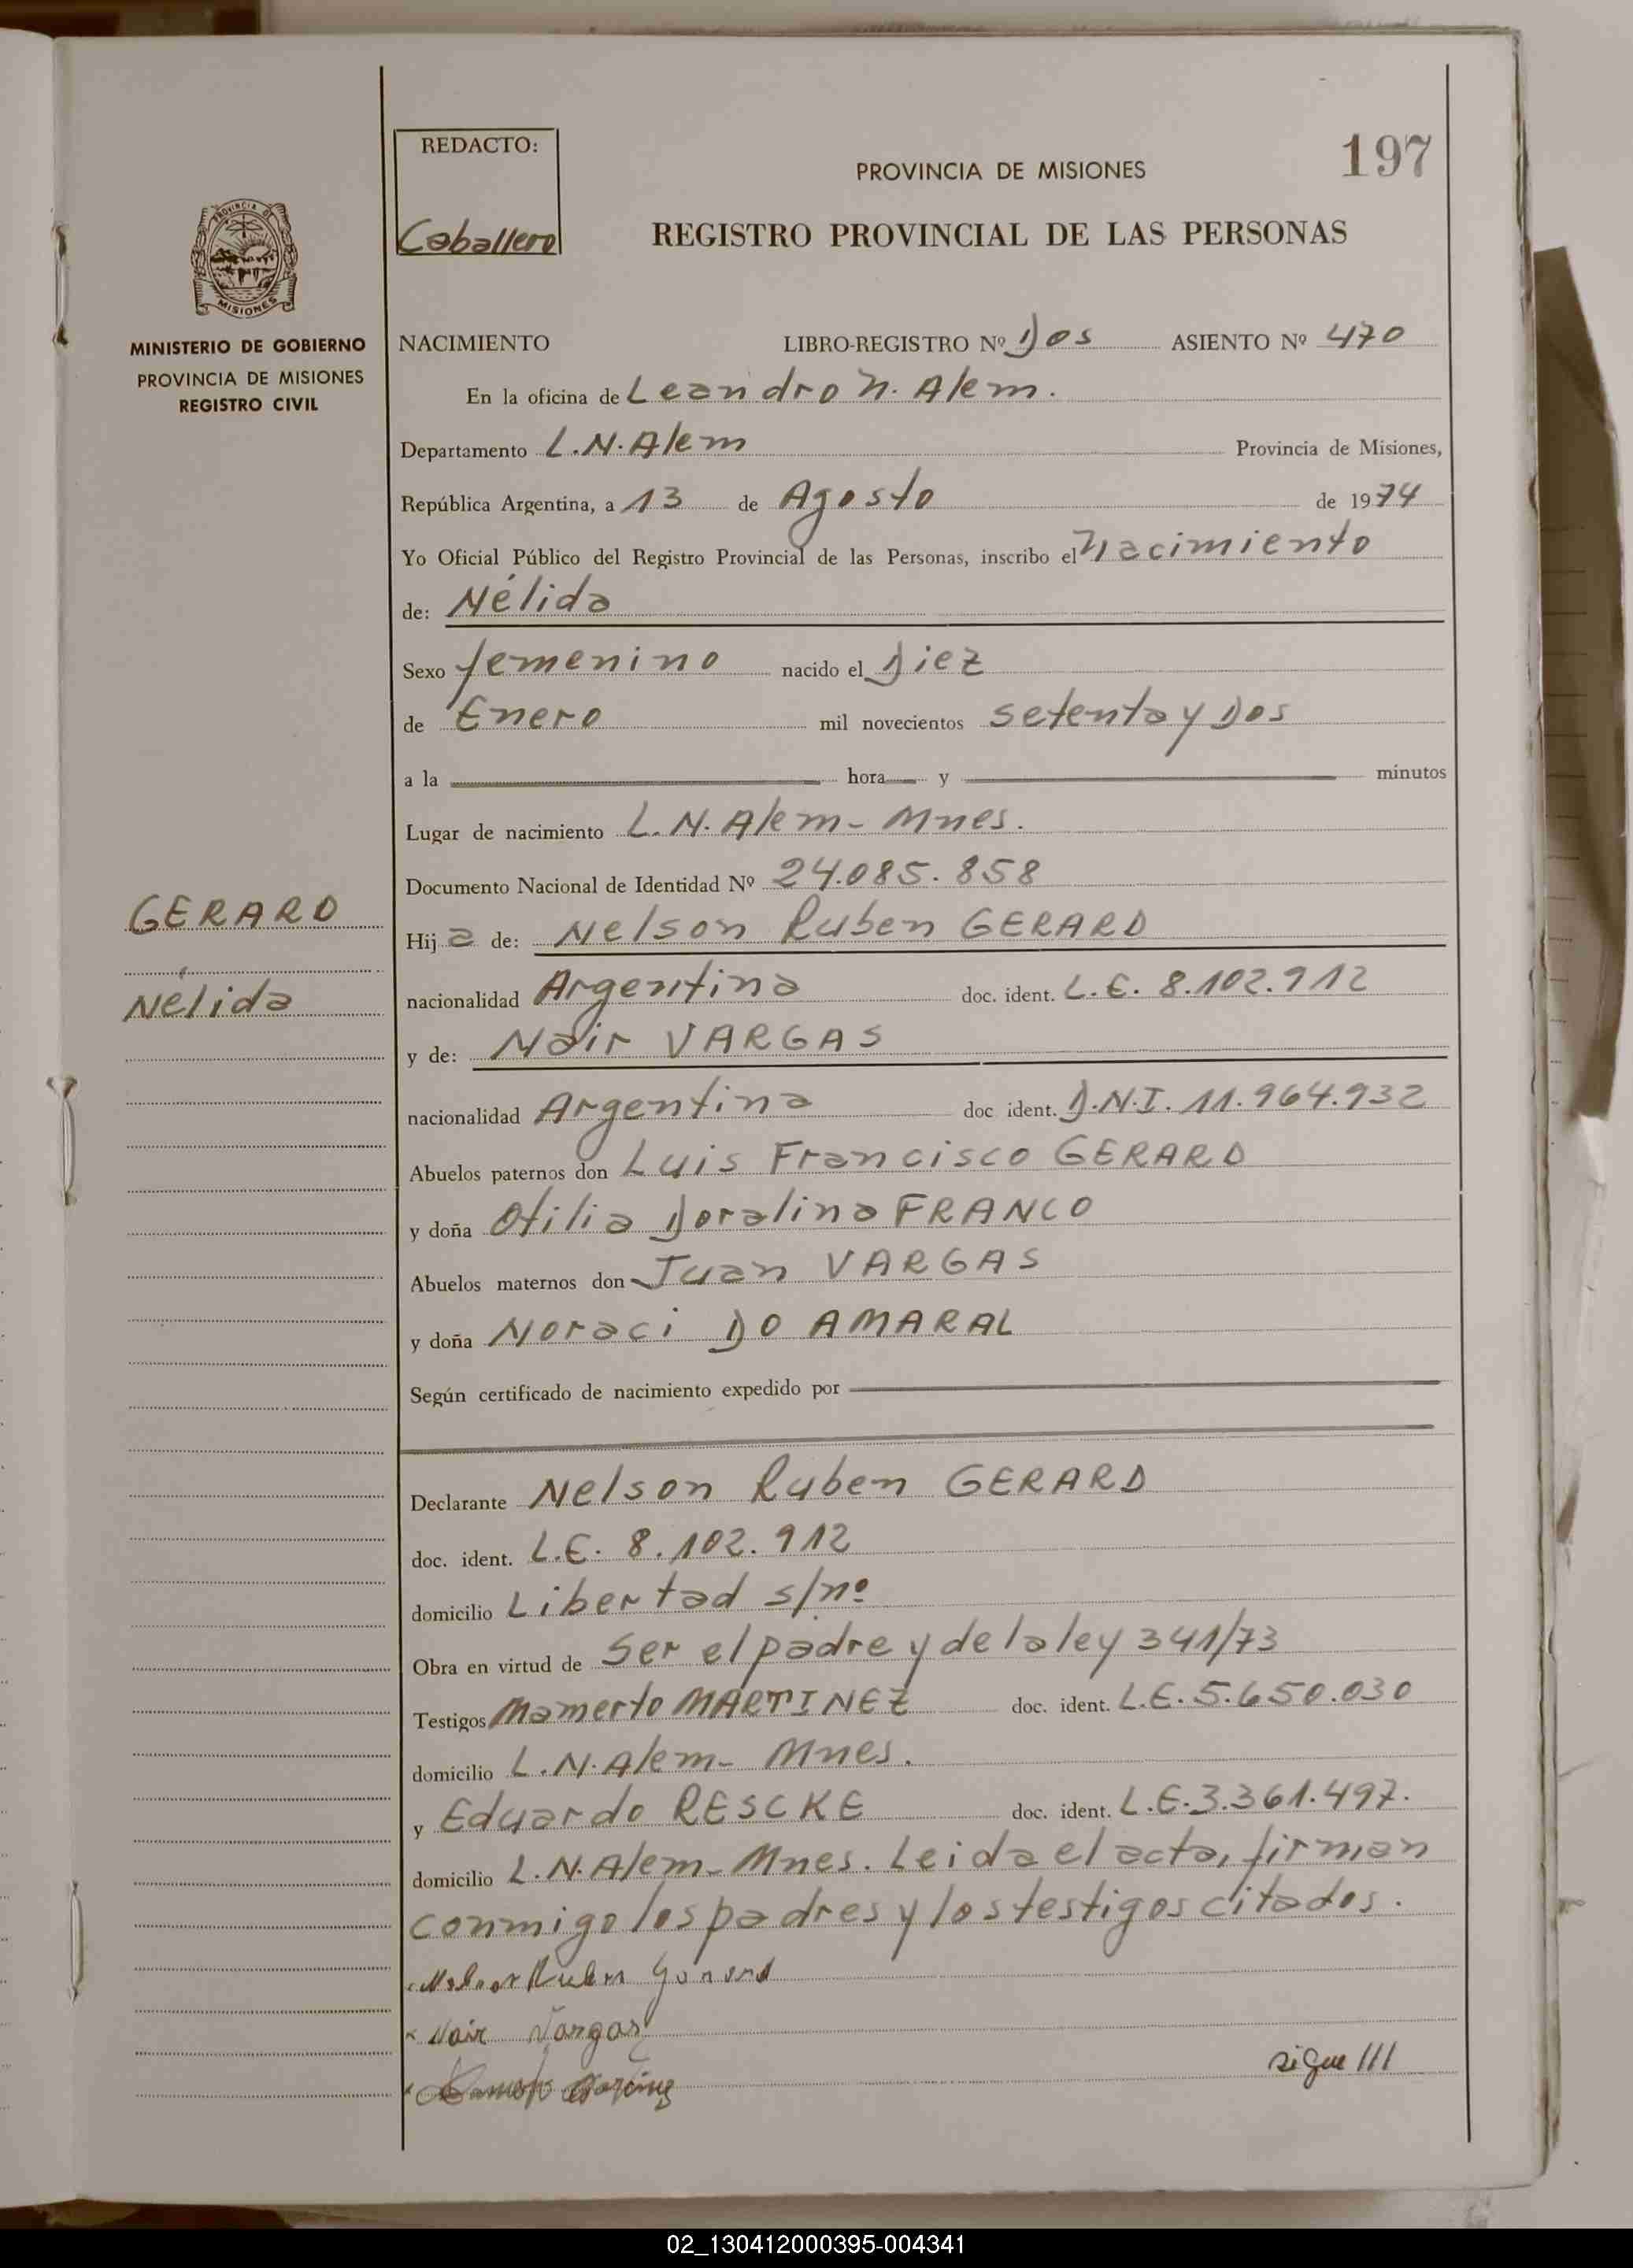 REDACTO:
Caballero
197
PROVINCIA DE MISIONES
REGISTRO PROVINCIAL DE LAS PERSONAS
PROVINCIA DE
MISIONES
MINISTERIO DE GOBIERNO
PROVINCIA DE MISIONES
REGISTRO CIVIL
NACIMIENTO LIBRO-REGISTRO Nº Dos ASIENTO Nº 470
En la oficina de Leandro N. Alem.
Departamento L.N.Alem Provincia de Misiones,
República Argentina, a 13 de Agosto de 1974
Yo Oficial Público del Registro Provincial de las Personas, inscribo el Nacimiento
de: Nélida
Sexo femenino nacido el Diez
de Enero mil novecientos setenta y Dos
a la hora y minutos
Lugar de nacimiento L.N.Alem- Mnes.
Documento Nacional de Identidad Nº 24.085.858
GERARD
Nélida
Hija de: Nelson Ruben GERARD
nacionalidad Argentina doc. ident. L.E. 8.102.912
y de: Nair VARGAS
nacionalidad Argentina doc ident. D.N.I. 11.964.932
Abuelos paternos don Luis Francisco GERARD
y doña Otilia Doralina FRANCO
Abuelos maternos don Juan VARGAS
y doña Noraci DO AMARAL
Según certificado de nacimiento expedido por
Declarante Nelson Ruben GERARD
doc. ident. L.E. 8.102.912
domicilio Libertad s/nº
Obra en virtud de ser el padre y de la ley 341/73
Testigos Mamerto MARTINEZ doc. ident. L.E. 5.650.030
domicilio L.N.Alem- Mnes.
y Eduardo RESCKE doc. ident. L.E.3.361.497.
domicilio L.N.Alem-Mnes. Leida el acta, firman
conmigo los padres y los testigos citados.
Ruben
Nair Vargas
sigue ///
02_130412000395-004341